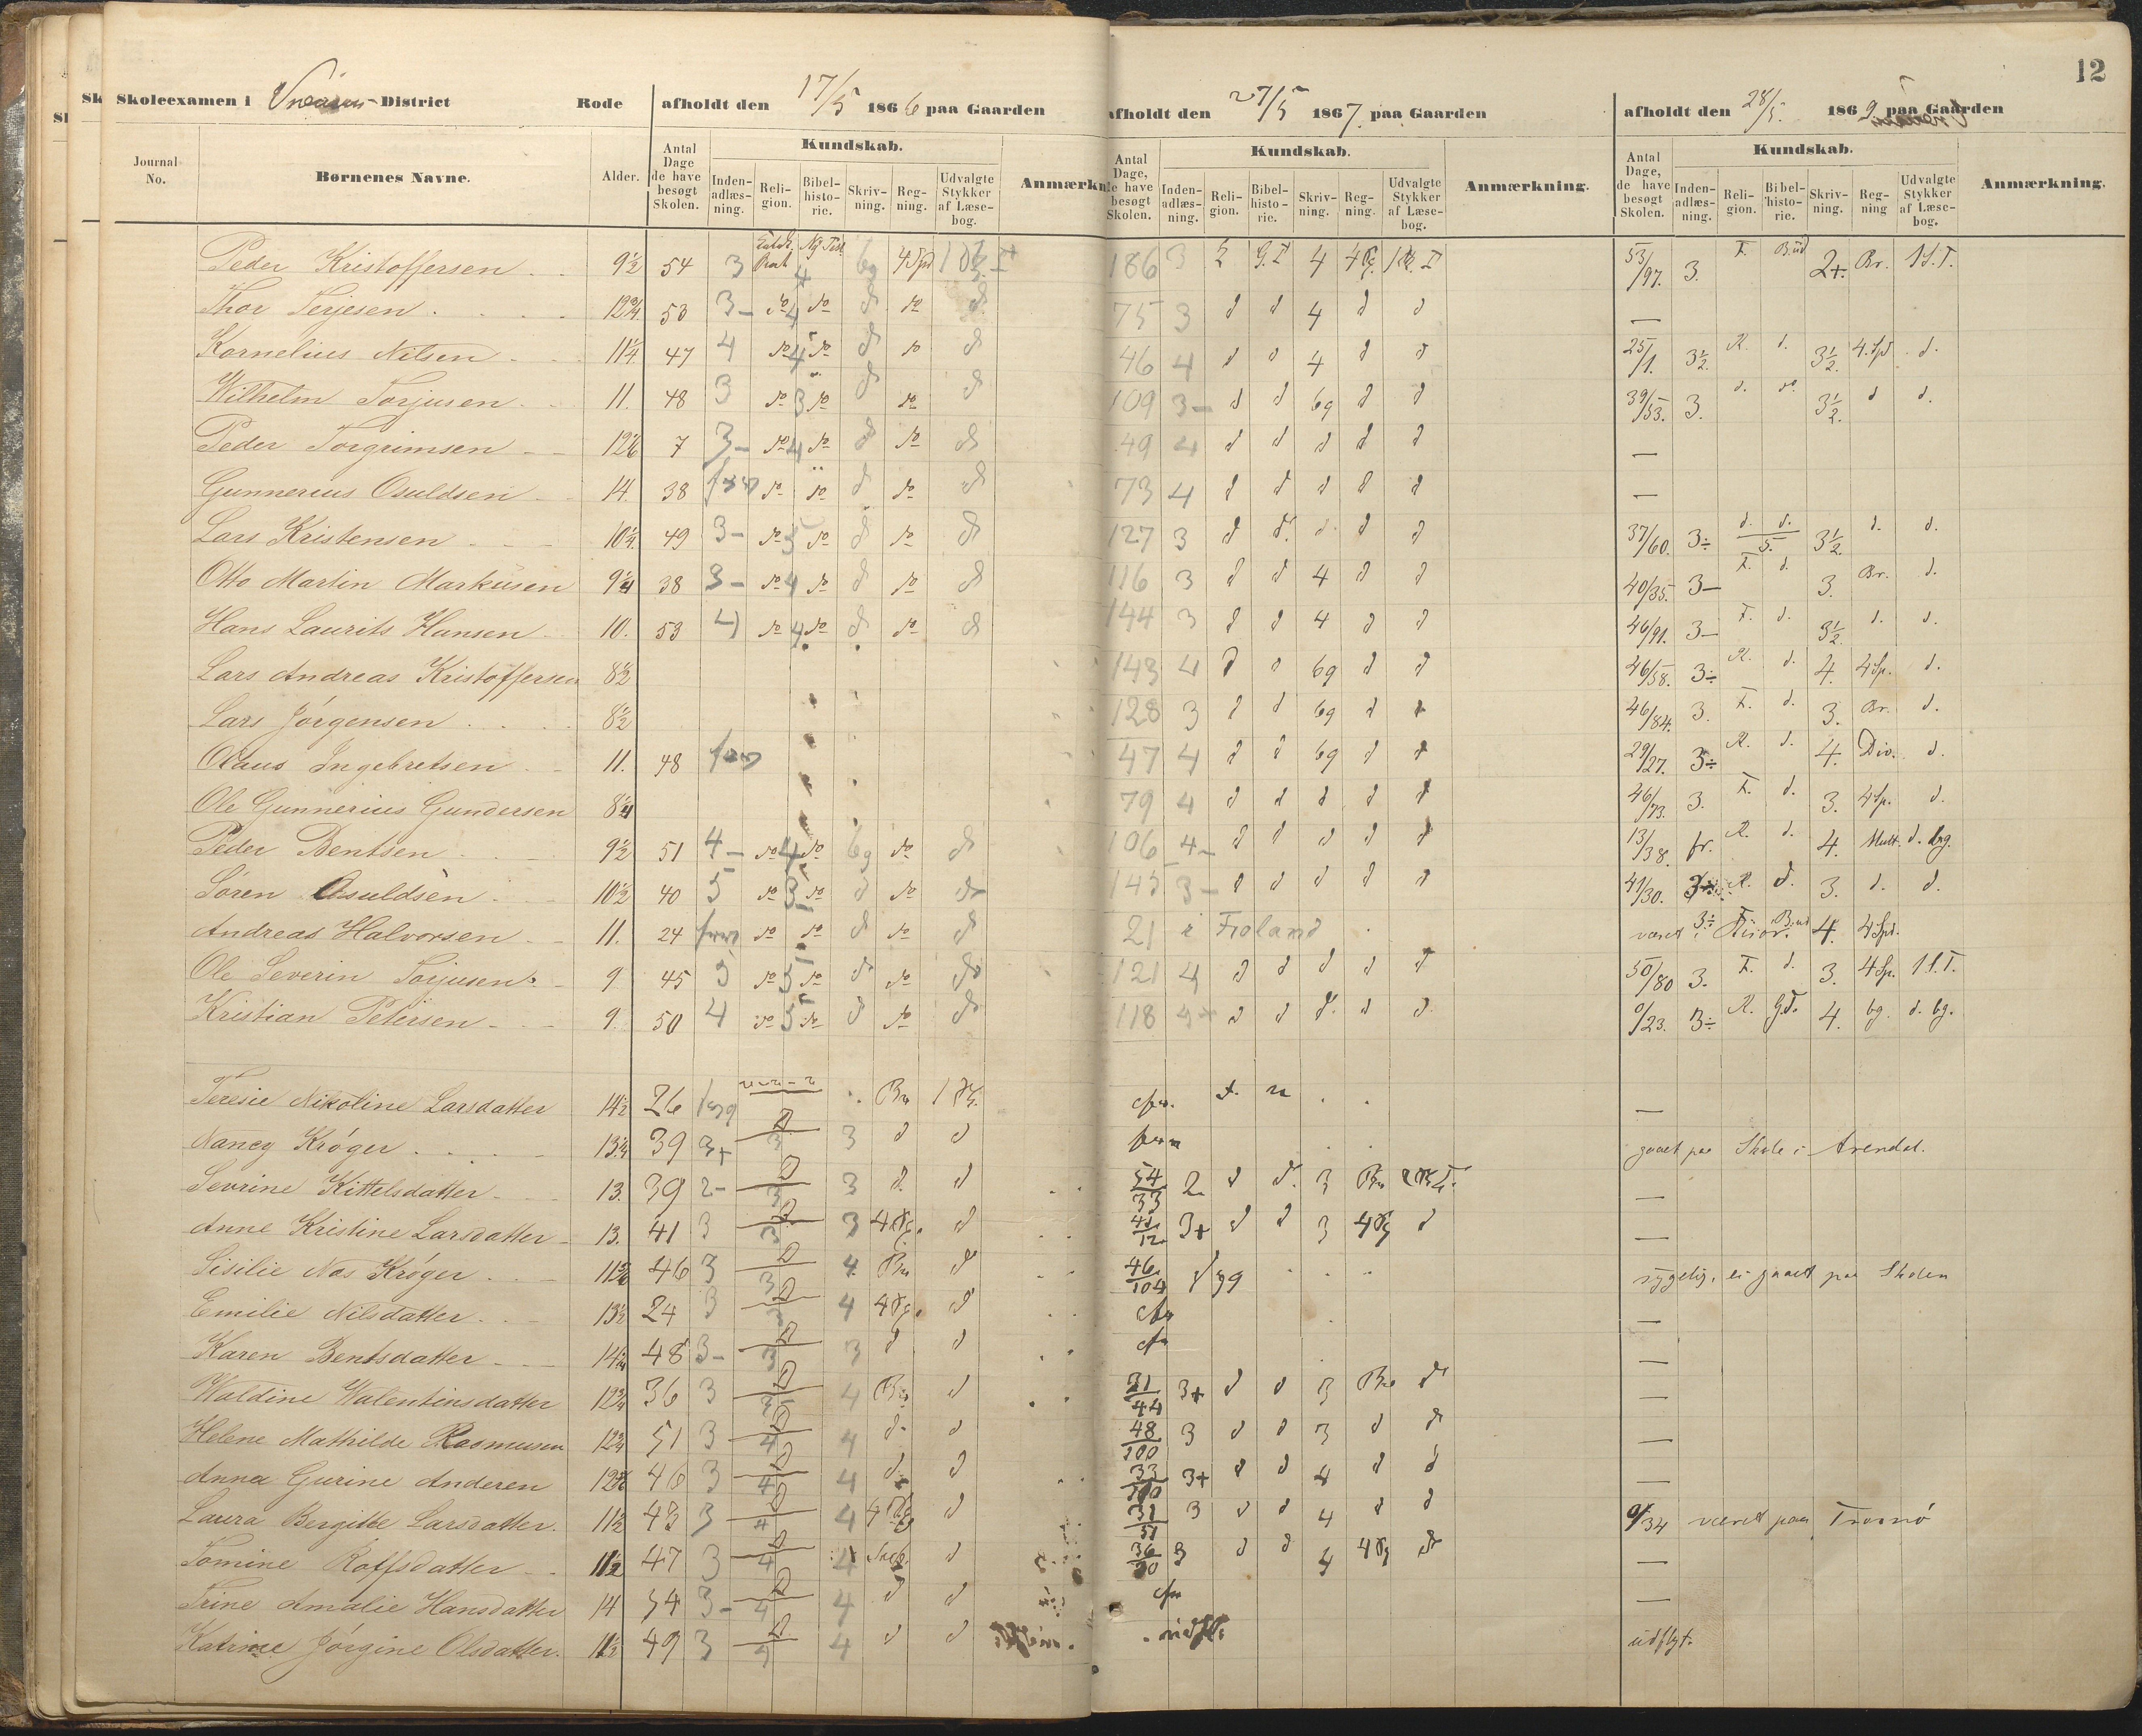 12
Skoleexamen i Vraasen-District Rode afholdt den 17/5 1866 paa Gaarden afholdt den 27/5 1867. paa Gaarden afholdt den 28/5. 1869. paa Gaarden
Journal No. Børnenes Navne. Alder. Antal Dage de have besøgt Skolen. Kundskab. Inden-adlæs-ning. Reli-gion. Bibel-histo-rie. Skriv-ning. Reg-ning. Udvalgte Stykker af Læse-bog. Anmærkn Antal Dage, de have besøgt Skolen. Kundskab. Inden-adlæs-ning. Reli-gion. Bibel-histo-rie. Skriv-ning. Reg-ning. Udvalgte Stykker af Læse-bog. Anmærkning. Antal Dage, de have besøgt Skolen. Kundskab. Inden-adlæs-ning. Reli-gion. Bibel-histo-rie. Skriv-ning. Reg-ning Udvalgte Stykker af Læse-bog. Anmærkning.
Peder Kristoffersen 9½ 54 3 4 bg 4 Spd 186 3 4 53/97. 3. F. Bud 2+. Br. 1 S. T.
Thor Terjesen 12¾ 53 3- do 4 do d do d 75 3 d d 4 d d —
Kornelius Nilsen 11¼ 47 4 do 4 do d do d 46 4 d d 4 d d 25/1. 3½. R. d. 3½. 4. Spd. d.
Wilhelm Torjusen 11. 48 3 do 3 do d do d 109 3- d d bg d d 39/53. 3. d. do 3½. d d.
Peder Torgrimsen 7 3- do 4 do d do d 49 4 d d d d d —
Gunnerius Osuldsen 14. 38 do do d do d 73 4 d d d d d —
Lars Kristensen 10½ 49 3- do do d do d 127 3 d d. d. d d 37/60. 3÷ d. d. 3½. d. d.
Otto Martin Markusen 9¼ 38 3- do 4 do d do d 116 3 d d 4 d d 40/35. 3- F. d. 3. Br. d.
Hans Laurits Hansen 10. 53 4 do 4 do d do d 144 3 d d 4 d d 46/91. 3- F. d. 3½. d. d.
Lars Andreas Kristoffersen 8½ 143 4 d d bg d d 46/58. 3÷ R. d. 4. 4 Sp. d.
Lars Jörgensen 8½ 128 3 d d bg d d 46/84. 3. F. d. 3. Br. d.
Olaus Ingebretsen 11. 48 47 4 d d bg d d 29/27. 3÷ R. d. 4. Div. d.
Ole Gunnerius Gundersen 8¼ 79 4 d d d d d 46/73. 3. F. d. 3. 4 Sp. d.
Peder Bentsen 9½ 51 4- do 4 do bg do d 106 4- d d d d d 13/38. fr. R. d. 4. Mult. d. bg.
Sören Osuldsen 10½ 40 5 do do d do d 145 3- d d d d d 41/30. R. d. 3. d. d.
Andreas Halvorsen 11. 24 do do d do d 21 i Froland været i 3÷ Bud 4. 4 Spd.
Ole Severin Torjusen 9 45 5 do 5 do d do d 121 4 d d d d d 50/80 3. F. d. 3. 4 Sp. 1 S. T.
Kristian Petersen 9. 50 4 do 5 do d do d 118 4+ d d d. d d. 0/23. 3÷ R. G.T. 4. bg. d. bg.
Teresie Nikoline Larsdatter 14½ 26 Br —
Nancy Kröger 13¼ 39 3+ D 3 3 d d gaaet paa Skole i Arendal.
Sevrine Kittelsdatter 13. 39 2- D 3 3 d. d 54/33 2 d d. 3 Br —
Anne Kristine Larsdatter 13. 41 3 D 3 3 d 3+ d d 3 d —
Sisilie Nas Kröger 46 3 D 3 4. Br d 46/104 syg sygelig, ei gaaet paa Skolen
Emilie Nilsdatter 13½ 24 3 D 4 d —
Karen Bentsdatter 14¼ 48 3- D 3 3 d d —
Waldine Walentinsdatter 12¾ 36 3 D 4 Br d 31/44 3+ d d 3 Br d —
Helene Mathilde Rasmusen 12¾ 51 3 D 4 4 d d 48/100 3 d d 3 d d —
Anna Gurine Anderen 46 3 D 4 4 d d 33/100 3+ d d 4 d d —
Laura Bergitte Larsdatter. 11½ 43 3 D 4 4 d 31/51 3 d d 4 d d 0/34 været paa Tromö
Tomine Roffsdatter 11½ 47 3 D 4 4 d 3 d d 4 d —
Trine Amalie Hansdatter 14 54 3- D 4 4 d d —
Katrine Jörgine Olsdatter. 11½ 49 3 D 4 4 d d udfl. udflyt.